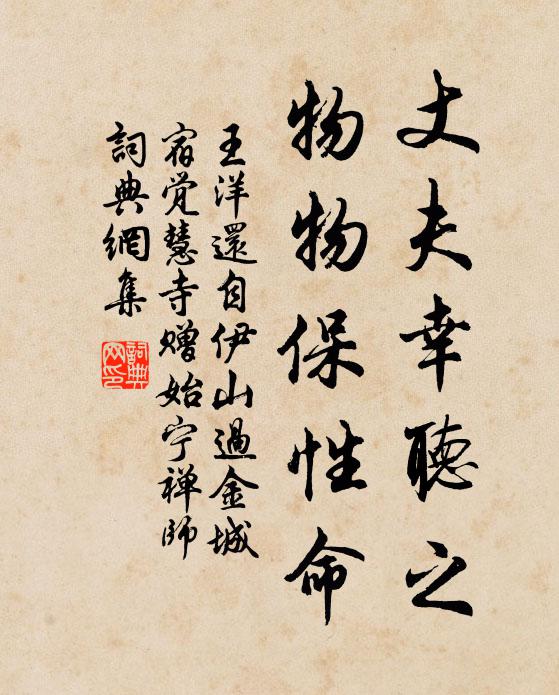 丈夫幸聽之
物物保性命
王洋還自伊山過金城
宿覚慧寺赠始宁禅师
詞典網集
詞典網印